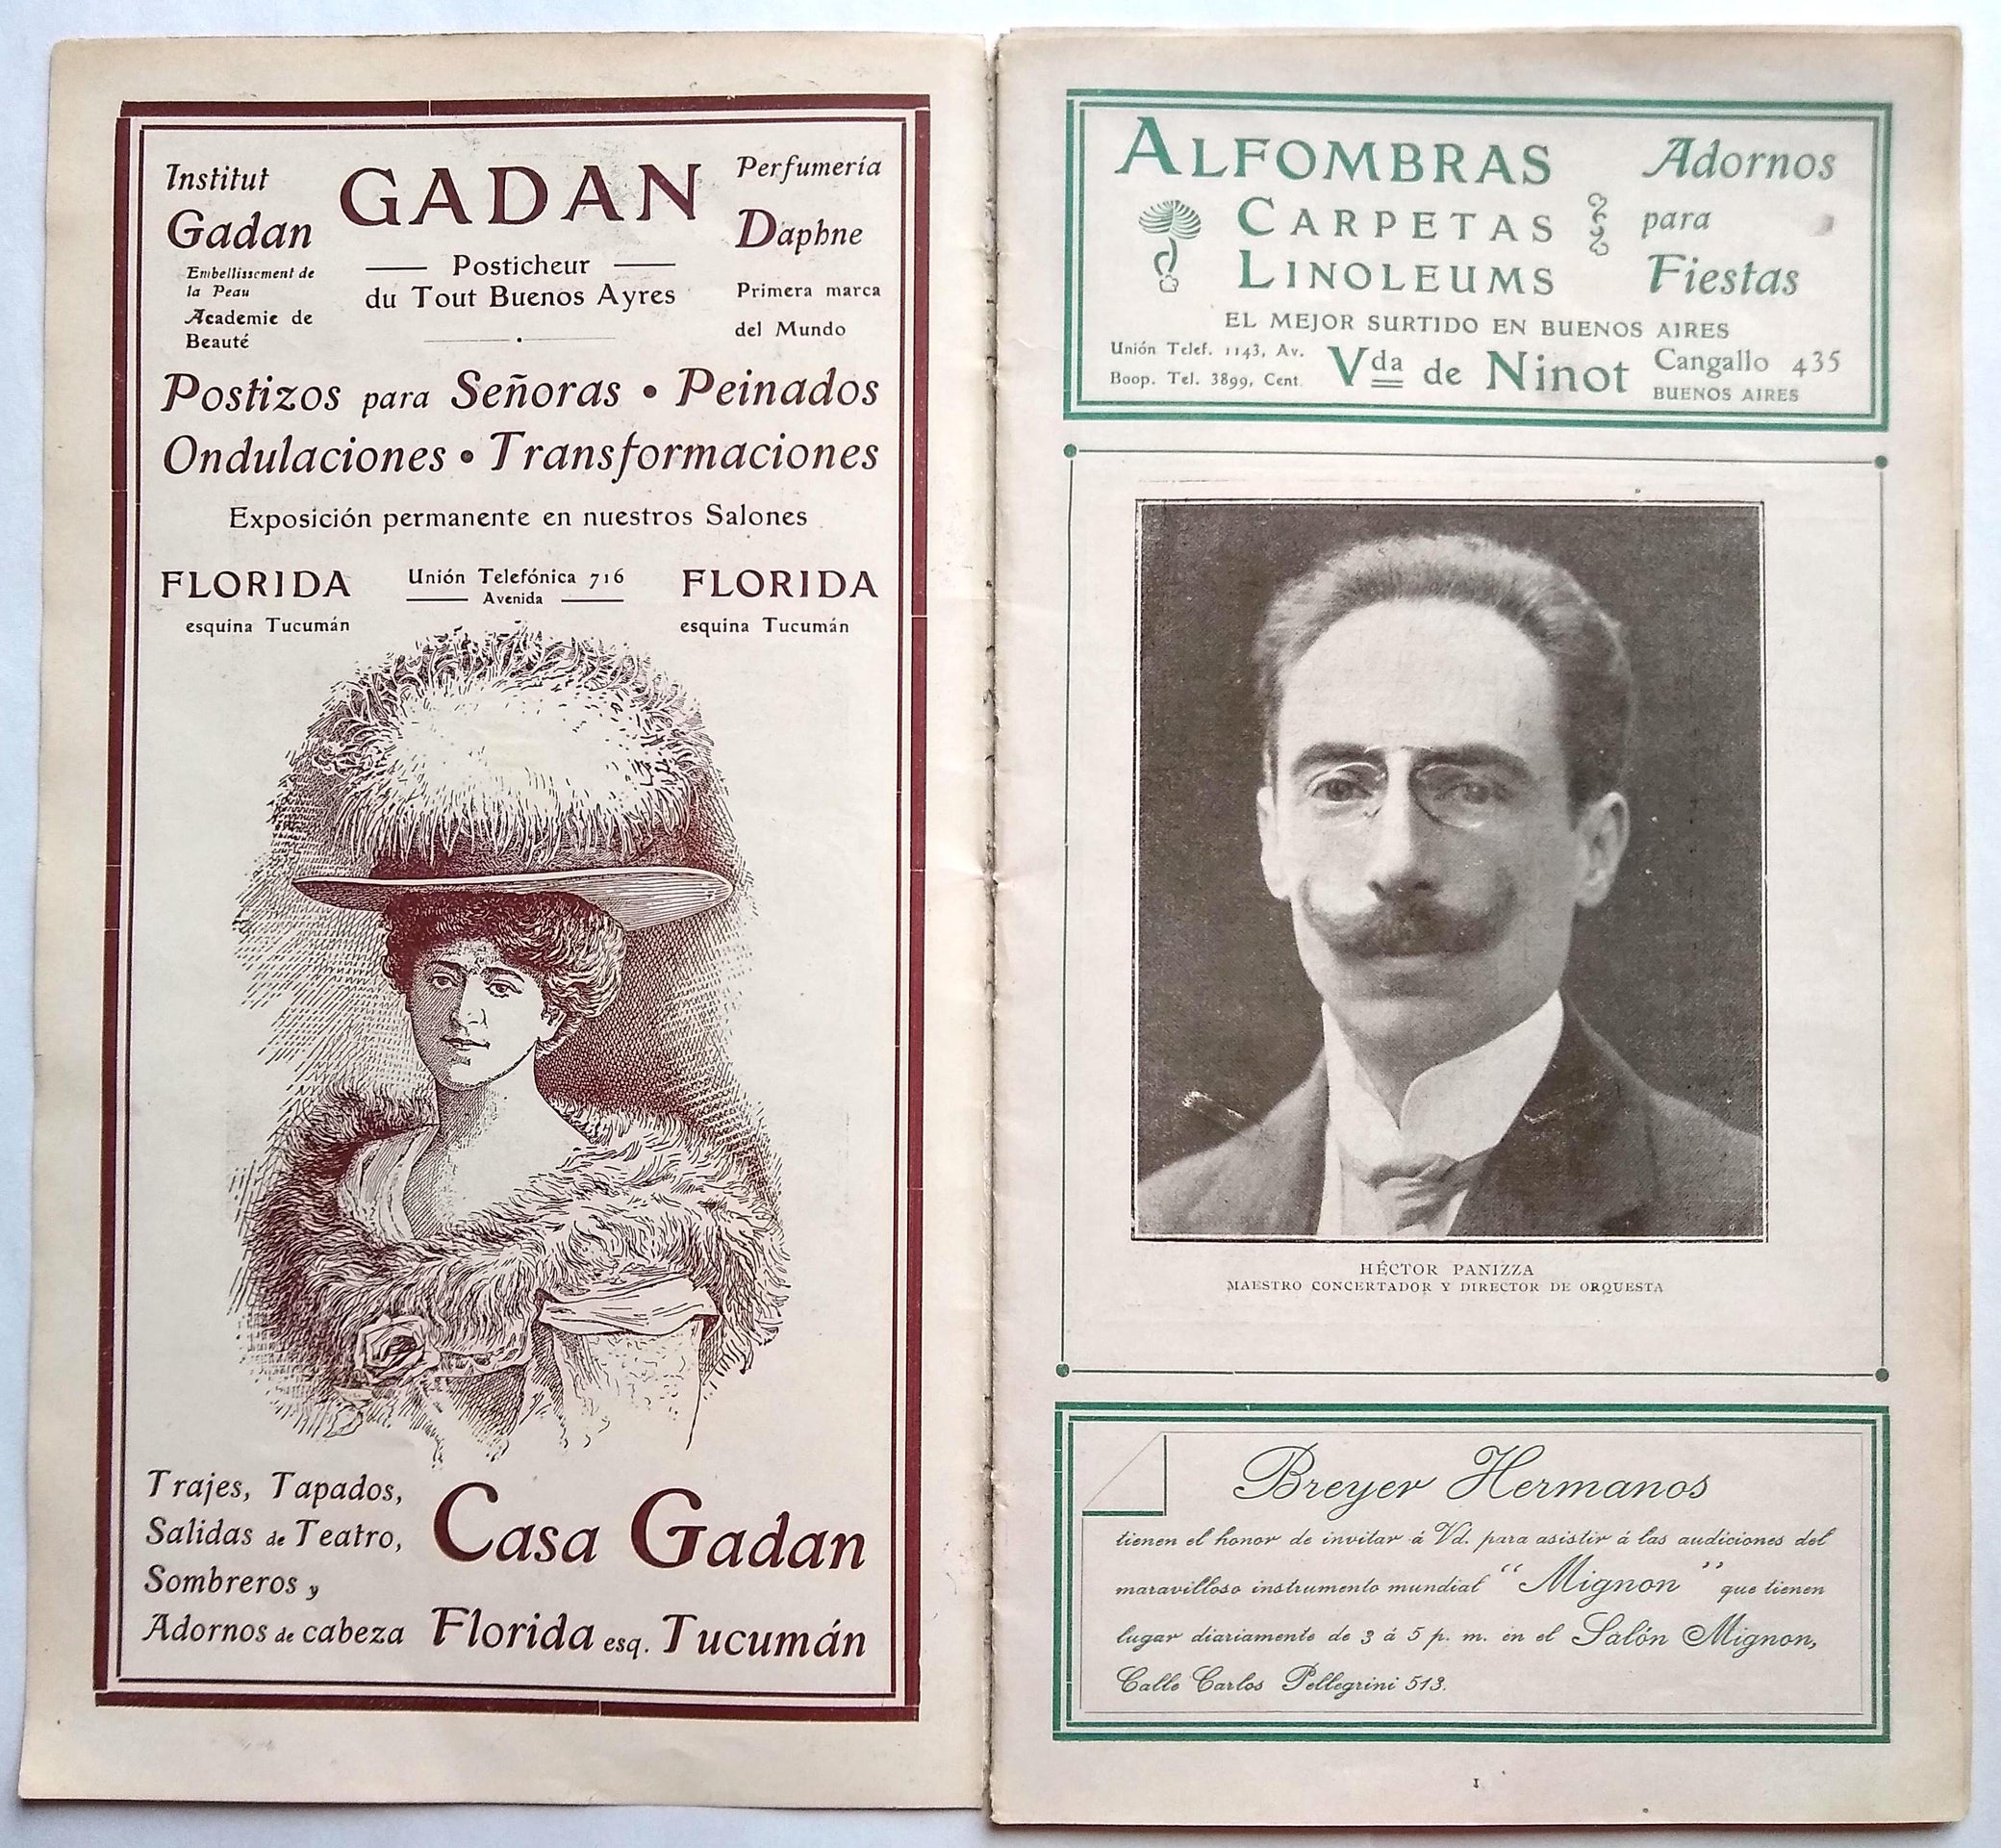 Institut
Gadan
Embellissement de
la Peau
Academie de
Beauté
GADAN
Posticheur
du Tout Buenos Ayres
Perfumería
Daphne
Primera marca
del Mundo
Postizos para Señoras • Peinados
Ondulaciones • Transformaciones
Exposición permanente en nuestros Salones
FLORIDA
esquina Tucumán
Unión Telefónica 716
Avenida
FLORIDA
esquina Tucumán
Trajes, Tapados,
Salidas de Teatro,
Sombreros y
Adornos de cabeza
Casa Gadan
Florida esq. Tucumán
ALFOMBRAS
CARPETAS
LINOLEUMS
Adornos
para
Fiestas
EL MEJOR SURTIDO EN BUENOS AIRES
Unión Telef. 1143, Av.
Boop. Tel. 3899, Cent.
Vda de Ninot
Cangallo 435
BUENOS AIRES
HÉCTOR PANIZZA
MAESTRO CONCERTADOR Y DIRECTOR DE ORQUESTA
Breyer Hermanos
tienen el honor de invitar á Vd. para asistir á las audiciones del
maravilloso instrumento mundial “Mignon” que tienen
lugar diariamente de 3 á 5 p. m. en el Salón Mignon,
Calle Carlos Pellegrini 513.
1